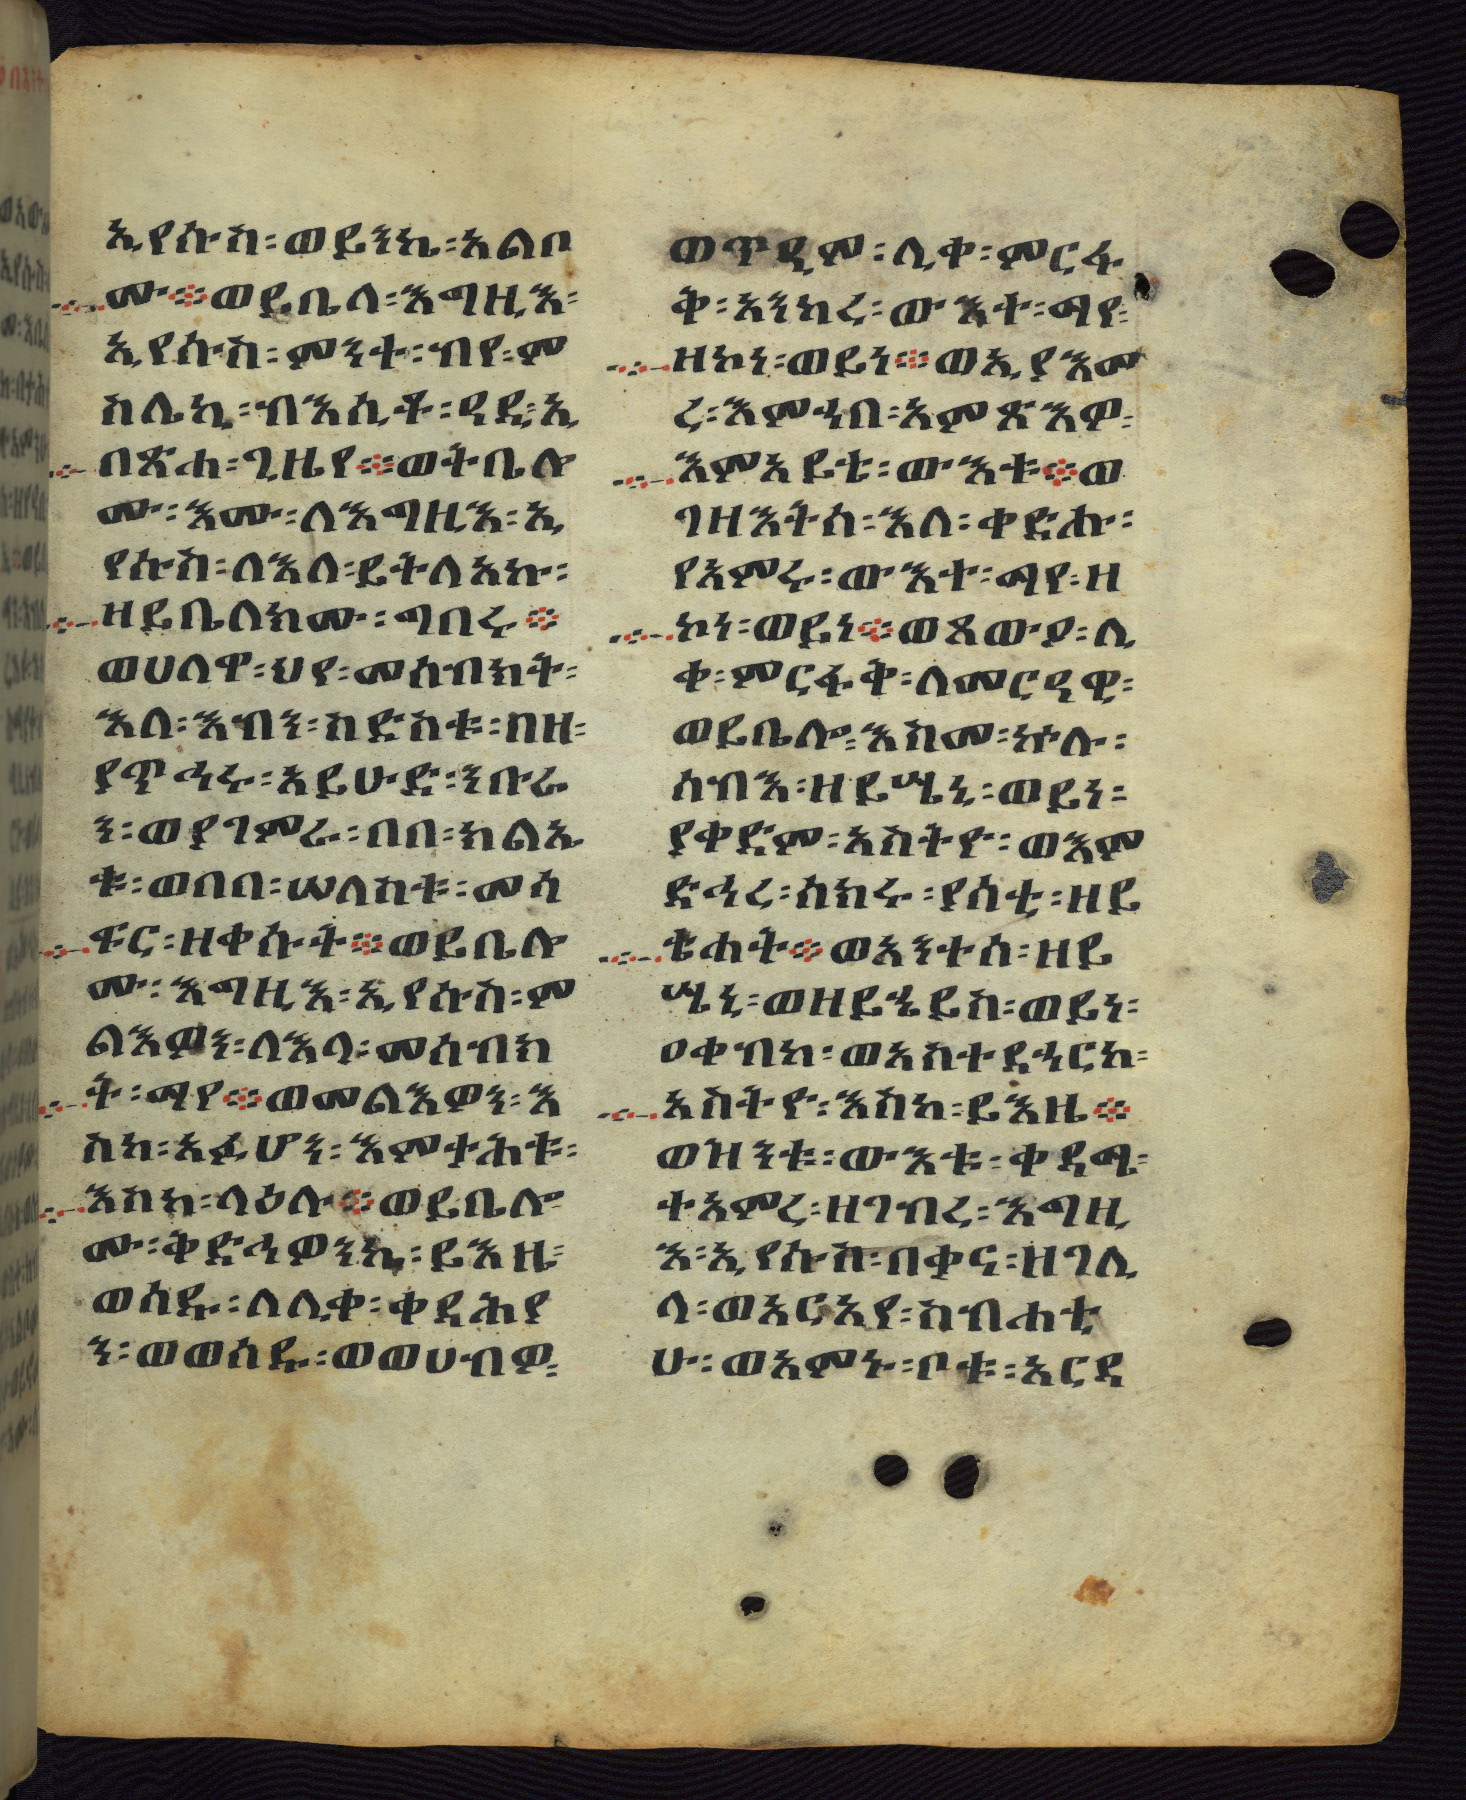 ኢየሱስ፡ወይንኬ፡አልቦ
ሙ፨ወይቤላ፡እግዚእ፡
ኢየሱስ፡ምንት፡ብየ፡ም
ስሌኪ፡ብእሲቶ፡ዓዲ፡ኢ
በጽሐ፡ጊዜየ፨ወትቤሎ
ሙ፡እሙ፡ለእግዚእ፡ኢ
የሱስ፡ለእለ፡ይትለአኩ፡
ዘይቤለክሙ፡ግበሩ፨
ወሀለዋ፡ህየ፡መሳብክት፡
እለ፡እብን፡ስድስቱ፡በዘ፡
ያጥሐሩ፡አይሁድ፡ንቡራ
ን፡ወያገምራ፡በበ፡ክልኤ
ቱ፡ወበበ፡ሠለስቱ፡መሳ
ፍር፡ዘቀሱት፨ወይቤሎ
ሙ፡እግዚእ፡ኢየሱስ፡ም
ልእዎን፡ለእላ፡መሳብክ
ት፡ማየ፨ወመልእዎን፡እ
ስከ፡አፉሆን፡እምታሕቱ፡
እስከ፡ላዕሉ፨ወይቤሎ
ሙ፡ቅድሐዎንኬ፡ይእዜ፡
ወሰዱ፡ለሊቀ፡ቀዳሕያ
ን፡ወወሰዱ፡ወወሀብዎ፡
ወጥዒሞ፡ሊቀ፡ምርፋ
ቅ፡አንከረ፡ውእተ፡ማየ፡
ዘኮነ፡ወይነ፨ወኢያእመ
ረ፡እምኀበ፡አምጽእዎ፡
እምአይቴ፡ውእቱ፨ወ
ገዘእትሰ፡እለ፡ቀድሑ፡
የአምሩ፡ውእተ፡ማየ፡ዘ
ኮነ፡ወይነ፨ወጸውዖ፡ሊ
ቀ፡ምርፋቅ፡ለመርዓዊ፡
ወይቤሎ፡እስመ፡ኵሉ፡
ሰብእ፡ዘይሤኒ፡ወይነ፡
ያቀድም፡አስትዮ፡ወእም
ድኅረ፡ሰክሩ፡ያሰቲ፡ዘይ
ቴሐት፨ወአንተሰ፡ዘይ
ሤኒ፡ወዘይኄይስ፡ወይነ፡
ዐቀብከ፡ወአስተዴኀርከ፡
አስትዮ፡እስከ፡ይእዜ፨
ወዝንቱ፡ውእቱ፡ቀዳሚ፡
ተአምረ፡ዘገብረ፡እግዚ
እ፡ኢየሱስ፡በቃና፡ዘገሊ
ላ፡ወአርአየ፡ስብሐቲ
ሁ፡ወአምኑ፡ቦቱ፡አርዳ